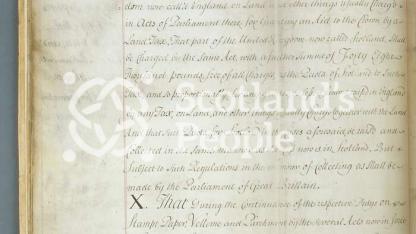 dom now call'd England, on Land and other things usually Charg'd
in Acts of Parliament there, for Granting an Aid to the Crown by a
Land Tax, That part of the United Kingdom now called Scotland, shall
be Charged by the same Act, with a further Summ of Forty Eight
Thousand pounds, free of all Charges, as the Quota of Scotland to such
Tax, and so proportionably for any greater or lesser Summ raised in England
by any Tax on Land, and other things usually Charged together with the Land
And that such Quota for Scotland in the cases aforesaid, be raised and
Collected in the same manner as the Cess now is in Scotland, But
subject to such Regulations in the manner of Collecting, as shall be
made by the Parliament of Great Britain.
X. That During the Continuance of the respective Dutys on
Stampt Paper, Vellome and Parchment, by the severall Acts now in force
Scotland's
People